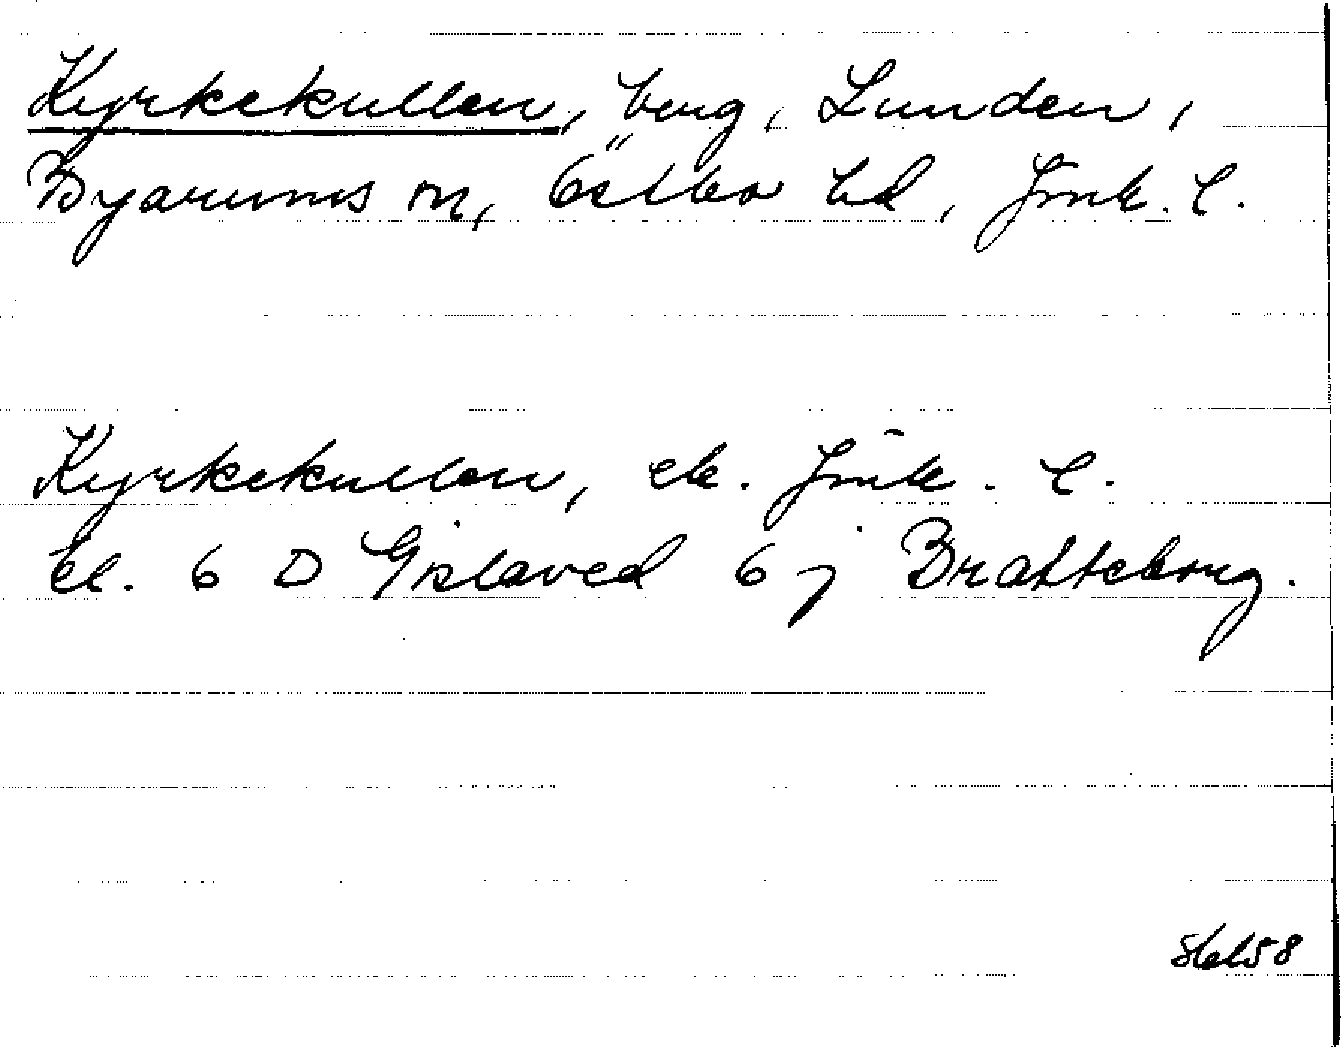 Kyrkekullen, berg, Lunden,
Byarums sn, Östbo hd, Jmk. l.
Kyrkekullen, ek. Jmk. l.
bl. 6 D Gislaved 6 j Bratteborg.